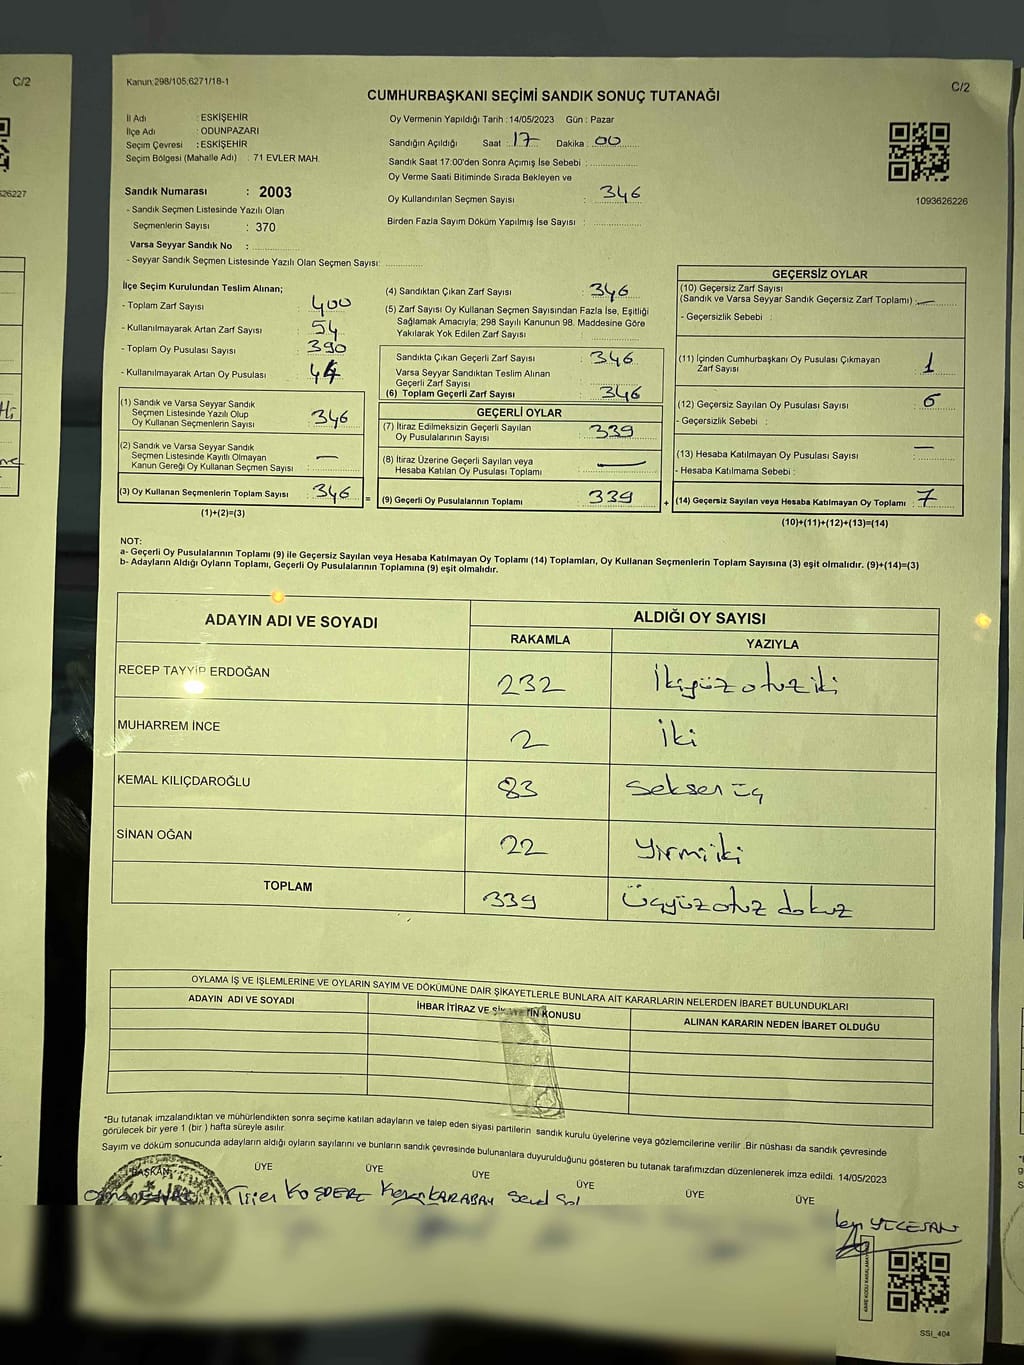 C/2
Kanun:298/105;6271/18-1
C/2
CUMHURBAŞKANI SEÇİMİ SANDIK SONUÇ TUTANAĞI
İl Adı : ESKİŞEHİR
İlçe Adı : ODUNPAZARI
Seçim Çevresi : ESKİŞEHİR
Seçim Bölgesi (Mahalle Adı) : 71 EVLER MAH.
Oy Vermenin Yapıldığı Tarih : 14/05/2023 Gün : Pazar
Sandığın Açıldığı Saat : 17 Dakika : 00
Sandık Saat 17:00'den Sonra Açımış İse Sebebi :
Oy Verme Saati Bitiminde Sırada Bekleyen ve
Oy Kullandırılan Seçmen Sayısı : 346
Birden Fazla Sayım Döküm Yapılmış İse Sayısı :
26227
1093626226
Sandık Numarası : 2003
- Sandık Seçmen Listesinde Yazılı Olan
Seçmenlerin Sayısı : 370
Varsa Seyyar Sandık No :
- Seyyar Sandık Seçmen Listesinde Yazılı Olan Seçmen Sayısı:
İlçe Seçim Kurulundan Teslim Alınan;
- Toplam Zarf Sayısı : 400
- Kullanılmayarak Artan Zarf Sayısı : 54
- Toplam Oy Pusulası Sayısı : 390
- Kullanılmayarak Artan Oy Pusulası : 44
(1) Sandık ve Varsa Seyyar Sandık
Seçmen Listesinde Yazılı Olup
Oy Kullanan Seçmenlerin Sayısı : 346
(2) Sandık ve Varsa Seyyar Sandık
Seçmen Listesinde Kayıtlı Olmayan
Kanun Gereği Oy Kullanan Seçmen Sayısı : —
(3) Oy Kullanan Seçmenlerin Toplam Sayısı : 346
(1)+(2)=(3)
=
(4) Sandıktan Çıkan Zarf Sayısı : 346
(5) Zarf Sayısı Oy Kullanan Seçmen Sayısından Fazla İse, Eşitliği
Sağlamak Amacıyla; 298 Sayılı Kanunun 98. Maddesine Göre
Yakılarak Yok Edilen Zarf Sayısı :
Sandıkta Çıkan Geçerli Zarf Sayısı : 346
Varsa Seyyar Sandıktan Teslim Alınan
Geçerli Zarf Sayısı :
(6) Toplam Geçerli Zarf Sayısı : 346
GEÇERLİ OYLAR
(7) İtiraz Edilmeksizin Geçerli Sayılan
Oy Pusulalarının Sayısı : 339
(8) İtiraz Üzerine Geçerli Sayılan veya
Hesaba Katılan Oy Pusulası Toplamı : —
(9) Geçerli Oy Pusulalarının Toplamı : 339
+
GEÇERSİZ OYLAR
(10) Geçersiz Zarf Sayısı
(Sandık ve Varsa Seyyar Sandık Geçersiz Zarf Toplamı) : —
- Geçersizlik Sebebi :
(11) İçinden Cumhurbaşkanı Oy Pusulası Çıkmayan
Zarf Sayısı : 1
(12) Geçersiz Sayılan Oy Pusulası Sayısı : 6
- Geçersizlik Sebebi :
(13) Hesaba Katılmayan Oy Pusulası Sayısı : —
- Hesaba Katılmama Sebebi :
(14) Geçersiz Sayılan veya Hesaba Katılmayan Oy Toplamı : 7
(10)+(11)+(12)+(13)=(14)
NOT:
a- Geçerli Oy Pusulalarının Toplamı (9) ile Geçersiz Sayılan veya Hesaba Katılmayan Oy Toplamı (14) Toplamları, Oy Kullanan Seçmenlerin Toplam Sayısına (3) eşit olmalıdır. (9)+(14)=(3)
b- Adayların Aldığı Oyların Toplamı, Geçerli Oy Pusulalarının Toplamına (9) eşit olmalıdır.
ADAYIN ADI VE SOYADI
ALDIĞI OY SAYISI
RAKAMLA YAZIYLA
RECEP TAYYİP ERDOĞAN 232 İkiyüz otuz iki
MUHARREM İNCE 2 İki
KEMAL KILIÇDAROĞLU 83 Seksen üç
SİNAN OĞAN 22 Yirmi iki
TOPLAM 339 Üçyüz otuz dokuz
OYLAMA İŞ VE İŞLEMLERİNE VE OYLARIN SAYIM VE DÖKÜMÜNE DAİR ŞİKAYETLERLE BUNLARA AİT KARARLARIN NELERDEN İBARET BULUNDUKLARI
ADAYIN ADI VE SOYADI İHBAR İTİRAZ VE ŞİKAYETİN KONUSU ALINAN KARARIN NEDEN İBARET OLDUĞU
*Bu tutanak imzalandıktan ve mühürlendikten sonra seçime katılan adayların ve talep eden siyasi partilerin sandık kurulu üyelerine veya gözlemcilerine verilir .Bir nüshası da sandık çevresinde
görülecek bir yere 1 (bir ) hafta süreyle asılır.
Sayım ve döküm sonucunda adayların aldığı oyların sayılarını ve bunların sandık çevresinde bulunanlara duyurulduğunu gösteren bu tutanak tarafımızdan düzenlenerek imza edildi. 14/05/2023
BAŞKAN ÜYE ÜYE ÜYE ÜYE ÜYE ÜYE
KARABAY
SSI_404